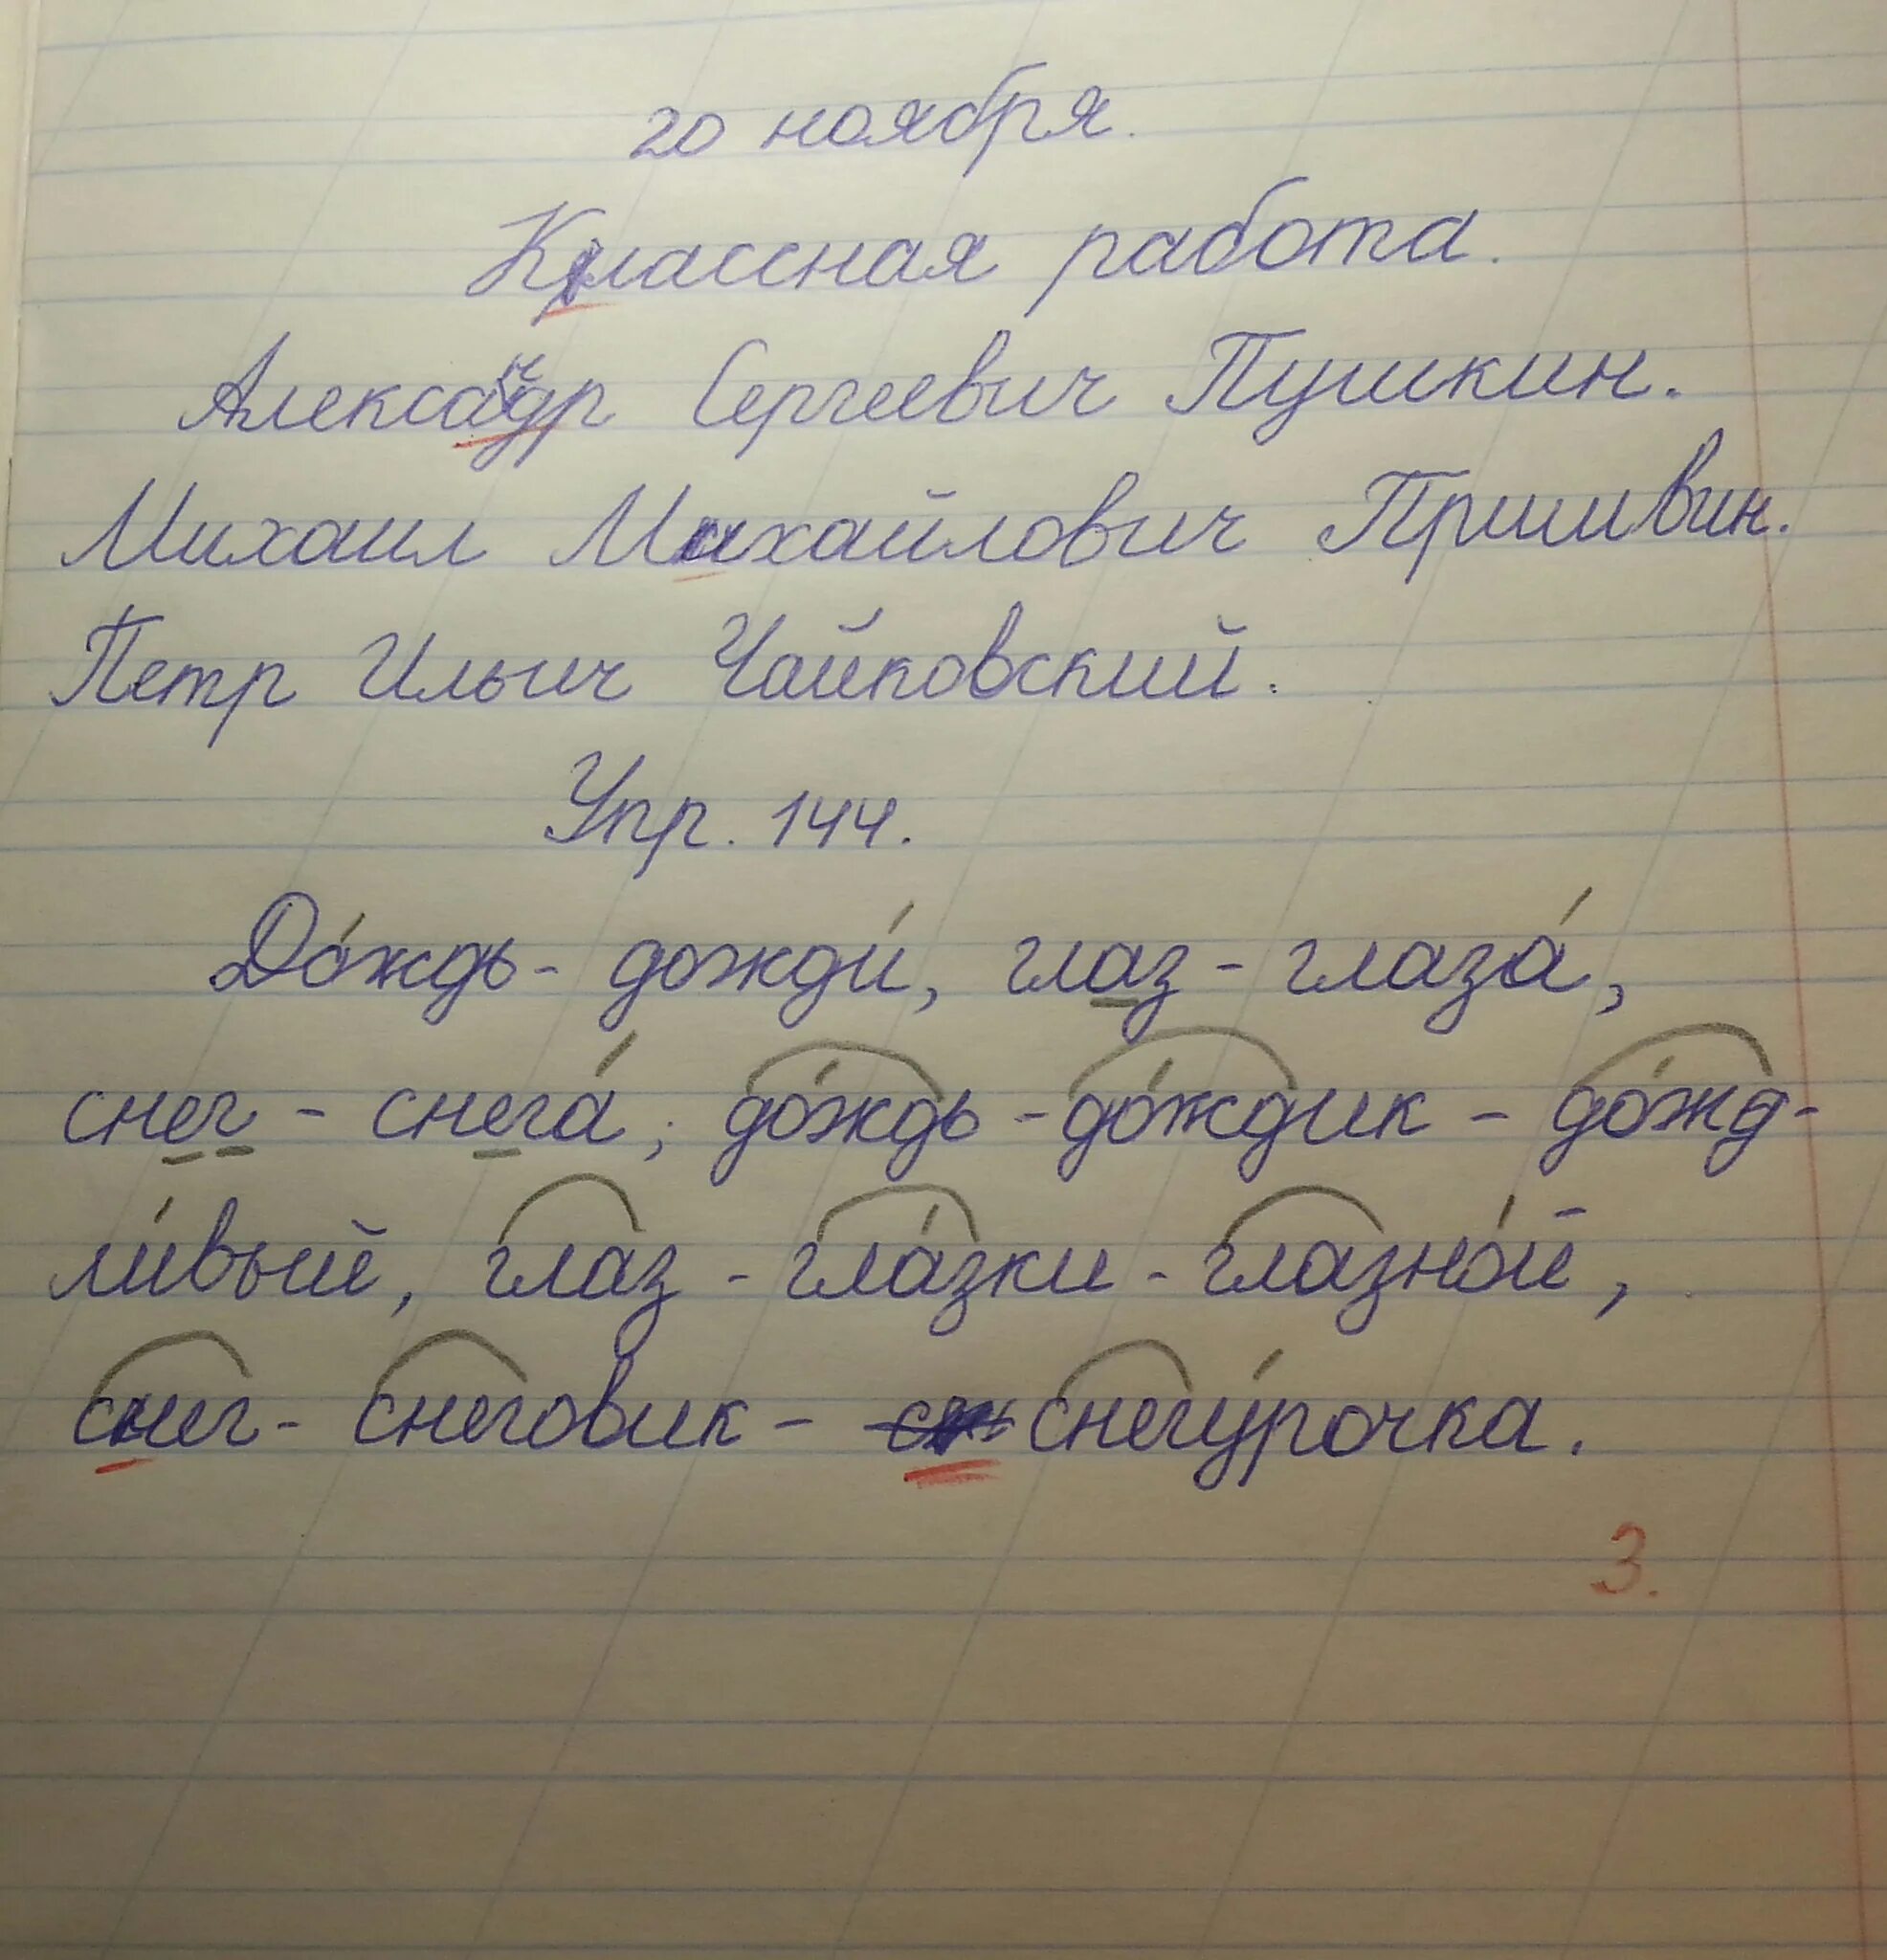 20 ноября.
Классная работа.
Александр Сергеевич Пушкин.
Михаил Михайлович Пришвин.
Петр Ильич Чайковский.
Упр. 144.
До́ждь - дожди́, глаз - глаза́,
снег - снега́, до́ждь - до́ждик - до́жд-
ли́вый, глаз - гла́зки - глазно́й,
снег - снеговик - снегу́рочка.
3.